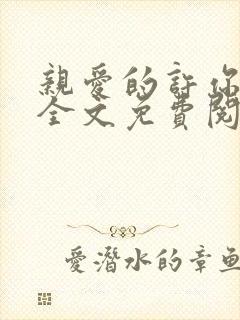 親愛的許你
全文免費閱
愛潛水的章魚